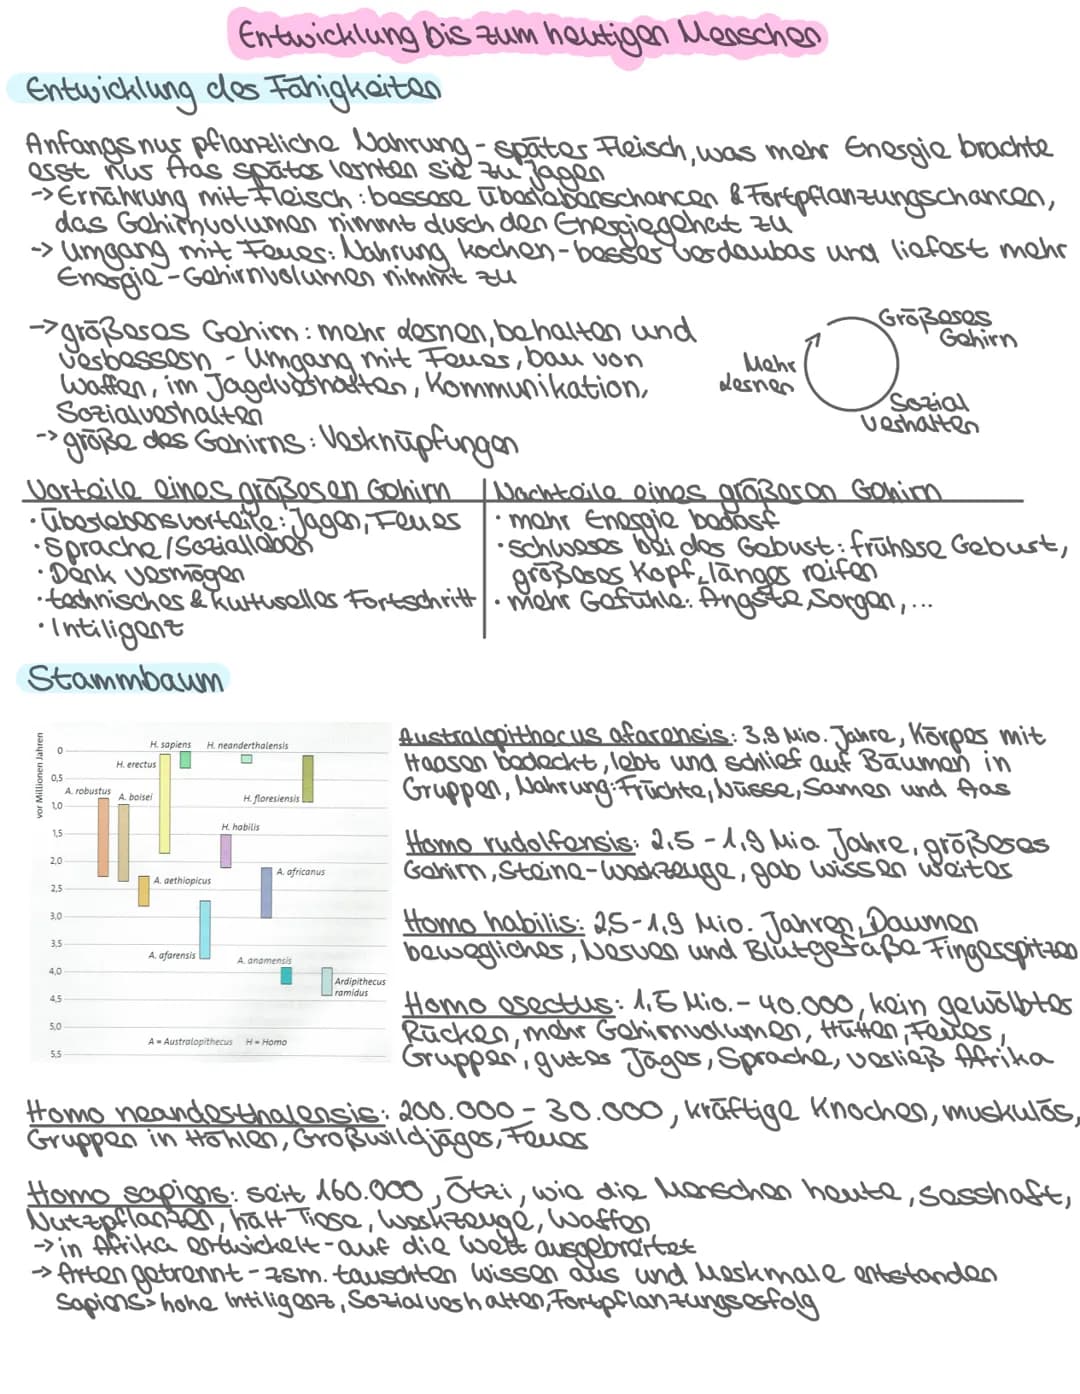 Entwicklung bis zum heutigen Menschen
Entwicklung der Fähigkeiten
Anfangs nur pflanzliche Nahrung - später Fleisch, was mehr Energie brachte
erst nur Aas später lernten sie zu jagen
-> Ernährung mit Fleisch: bessere überleberschancen & Fortpflanzungschancen,
das Gehirnvolumen nimmt durch den Energiegehat zu
-> Umgang mit Feuer: Nahrung kochen - besser verdaubar und liefert mehr
Energie - Gehirnvolumen nimmt zu
-> größeres Gehirn: mehr lernen, behalten und
verbessern - Umgang mit Feuer, bau von
Waffen, im Jagdverhalten, Kommunikation,
Sozialverhalten
-> größe des Gehirns: Verknüpfungen
Größeres
Gehirn
Mehr
lernen
Sozial
verhalten
Vorteile eines größeren Gehirn
• Überlebensvorteile: Jagen, Feuer
• Sprache/Sozialleben
• Denk vermögen
• technisches & kultureller Fortschritt
• Intiligent
Nachteile eines größeren Gehirn
• mehr Energie bedarf
• schwerer bei der Geburt: frühere Geburt,
größeres Kopf, länger reifen
• mehr Gefühle: Ängste, Sorgen, ...
Stammbaum
vor Millionen Jahren
0
0,5
1,0
1,5
2,0
2,5
3,0
3,5
4,0
4,5
5,0
5,5
H. sapiens
H. neanderthalensis
H. erectus
A. robustus
A. boisei
H. floresiensis
H. habilis
A. africanus
A. aethiopicus
A. afarensis
A. anamensis
Ardipithecus
ramidus
A = Australopithecus H = Homo
Australopithecus afarensis: 3,9 Mio. Jahre, Körper mit
Haaren bedeckt, lebt und schlief auf Bäumen in
Gruppen, Nahrung: Früchte, Nüsse, Samen und Aas
Homo rudolfensis: 2,5 - 1,9 Mio. Jahre, größeres
Gehirn, Steine-Werkzeuge, gab wissen weiter
Homo habilis: 2,5-1,9 Mio. Jahren, Daumen
beweglicher, Nerven und Blutgefäße Fingerspitzen
Homo erectus: 1,5 Mio. - 40.000, kein gewölbter
Rücken, mehr Gehirnvolumen, Hütten, Feuer,
Gruppen, guter Jäger, Sprache, verließ Afrika
Homo neanderthalensis: 200.000 - 30.000, kräftige Knochen, muskulös,
Gruppen in Höhlen, Großwildjäger, Feuer
Homo sapiens: seit 160.000, Ötzi, wie die Menschen heute, sesshaft,
Nutzpflanzen, hält Tiere, Werkzeuge, Waffen
-> in Afrika entwickelt - auf die Welt ausgebreitet
-> Arten getrennt - zsm. tauschten wissen aus und Merkmale entstanden
Sapiens > hohe Intiligenz, Sozialverhalten, Fortpflanzungserfolg